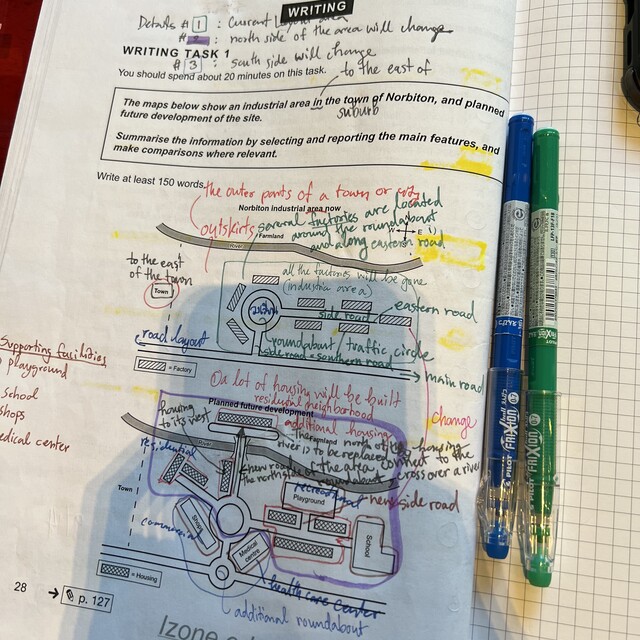 WRITING
Details # 1 : Current Layout area
# 2 : north side of the area will change
WRITING TASK 1
# 3 : south side will change
You should spend about 20 minutes on this task.
to the east of
The maps below show an industrial area in the town of Norbiton, and planned
future development of the site.
suburb
Summarise the information by selecting and reporting the main features, and
make comparisons where relevant.
Write at least 150 words.
the outer parts of a town or city
Norbiton industrial area now
outskirts
several factories are located
around the roundabout
and along eastern road
Farmland
River
E
to the east
of the town
Town
all the factories will be gone
(industria area)
eastern road
side road
road layout
roundabout / traffic circle
side road = southern road
main road
= Factory
a lot of housing will be built
residential neighborhood
change
Planned future development
housing
to its west
additional housing
The farmland north of the
river is to be replaced by housing
River
residential
new road
the north side of the area, connect to the
roundabout
cross over a river
Supporting facilities
playground
school
shops
medical center
Playground
new side road
Town
commercial
Shops
Medical
centre
School
= Housing
health care center
additional roundabout
28
p. 127
PILOT FRIXION
PILOT FRIXION